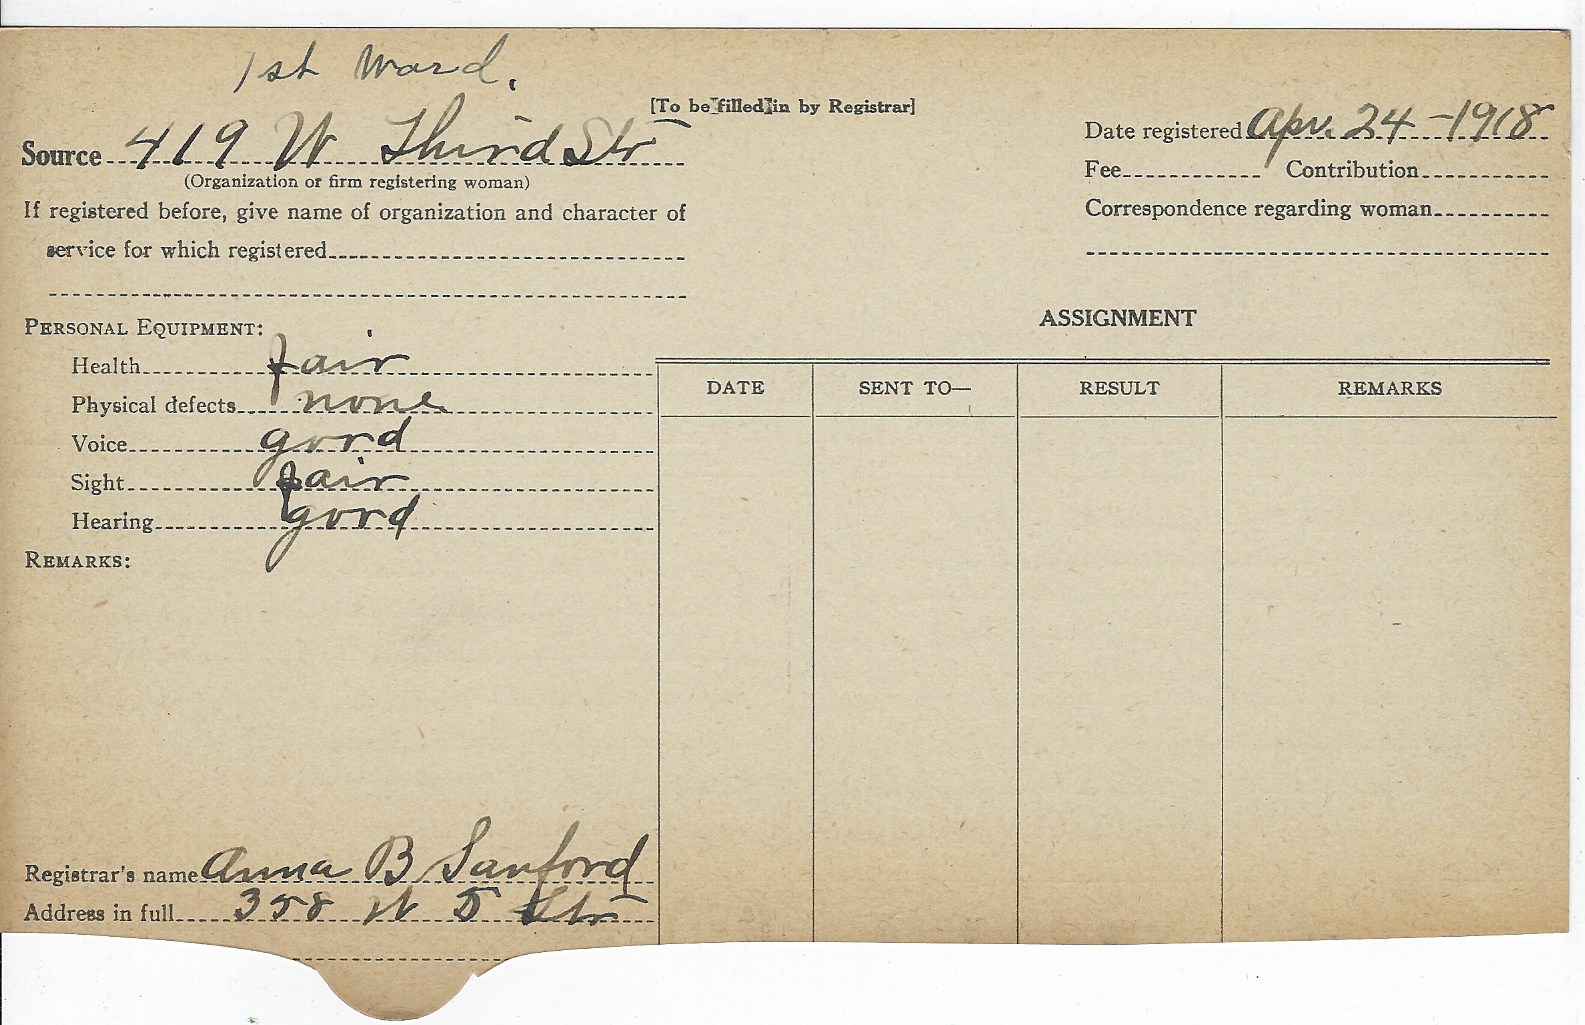 1st Ward.
[To be filled in by Registrar]
Source 419 W Third Str
(Organization or firm registering woman)
If registered before, give name of organization and character of
service for which registered
Date registered Apr. 24-1918
Fee Contribution
Correspondence regarding woman
PERSONAL EQUIPMENT:
Health fair
Physical defects none
Voice good
Sight fair
Hearing good
REMARKS:
ASSIGNMENT
DATE SENT TO— RESULT REMARKS
Registrar's name Anna B Sanford
Address in full 358 W 5 Str